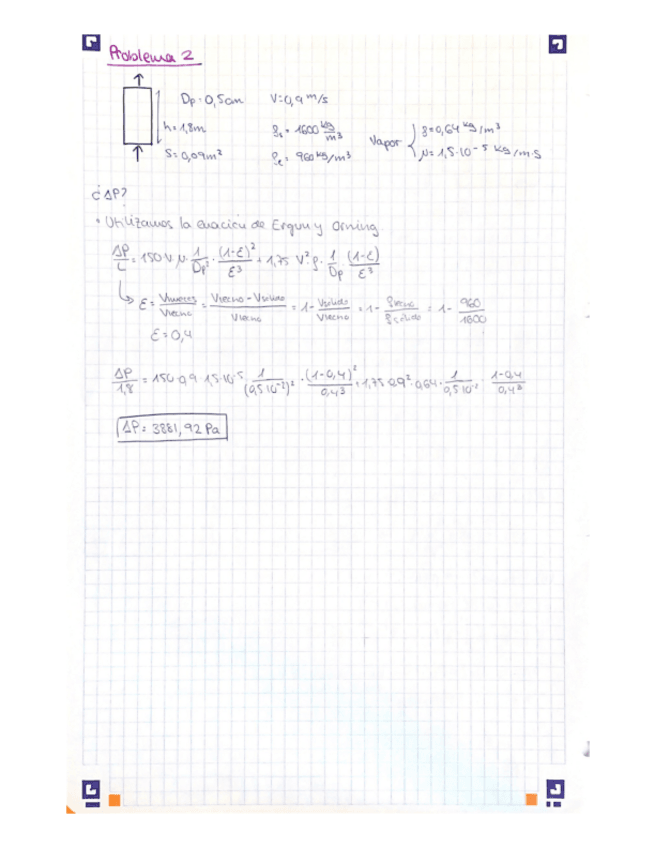 Problema 2
Dp = 0,5cm V = 0,9 m/s
h = 1,8m ρs = 1600 kg/m³ Vapor { ρ = 0,64 kg/m³
S = 0,09m² ρe = 960 kg/m³ μ = 1,5·10⁻⁵ kg/m·s
¿ΔP?
• Utilizamos la ecuación de Ergun y Orning
ΔP/L = 150·V·μ·1/Dp²·(1-ε)²/ε³ + 1,75 V²·ρ·1/Dp·(1-ε)/ε³
ε = Vhuecos/Vlecho = Vlecho - Vsólido/Vlecho = 1 - Vsólido/Vlecho = 1 - ρlecho/ρsólido = 1 - 960/1600
ε = 0,4
ΔP/1,8 = 150·0,9·1,5·10⁻⁵·1/(0,5·10⁻²)²·(1-0,4)²/0,4³ + 1,75·0,9²·0,64·1/0,5·10⁻²·1-0,4/0,4³
ΔP = 3881,92 Pa